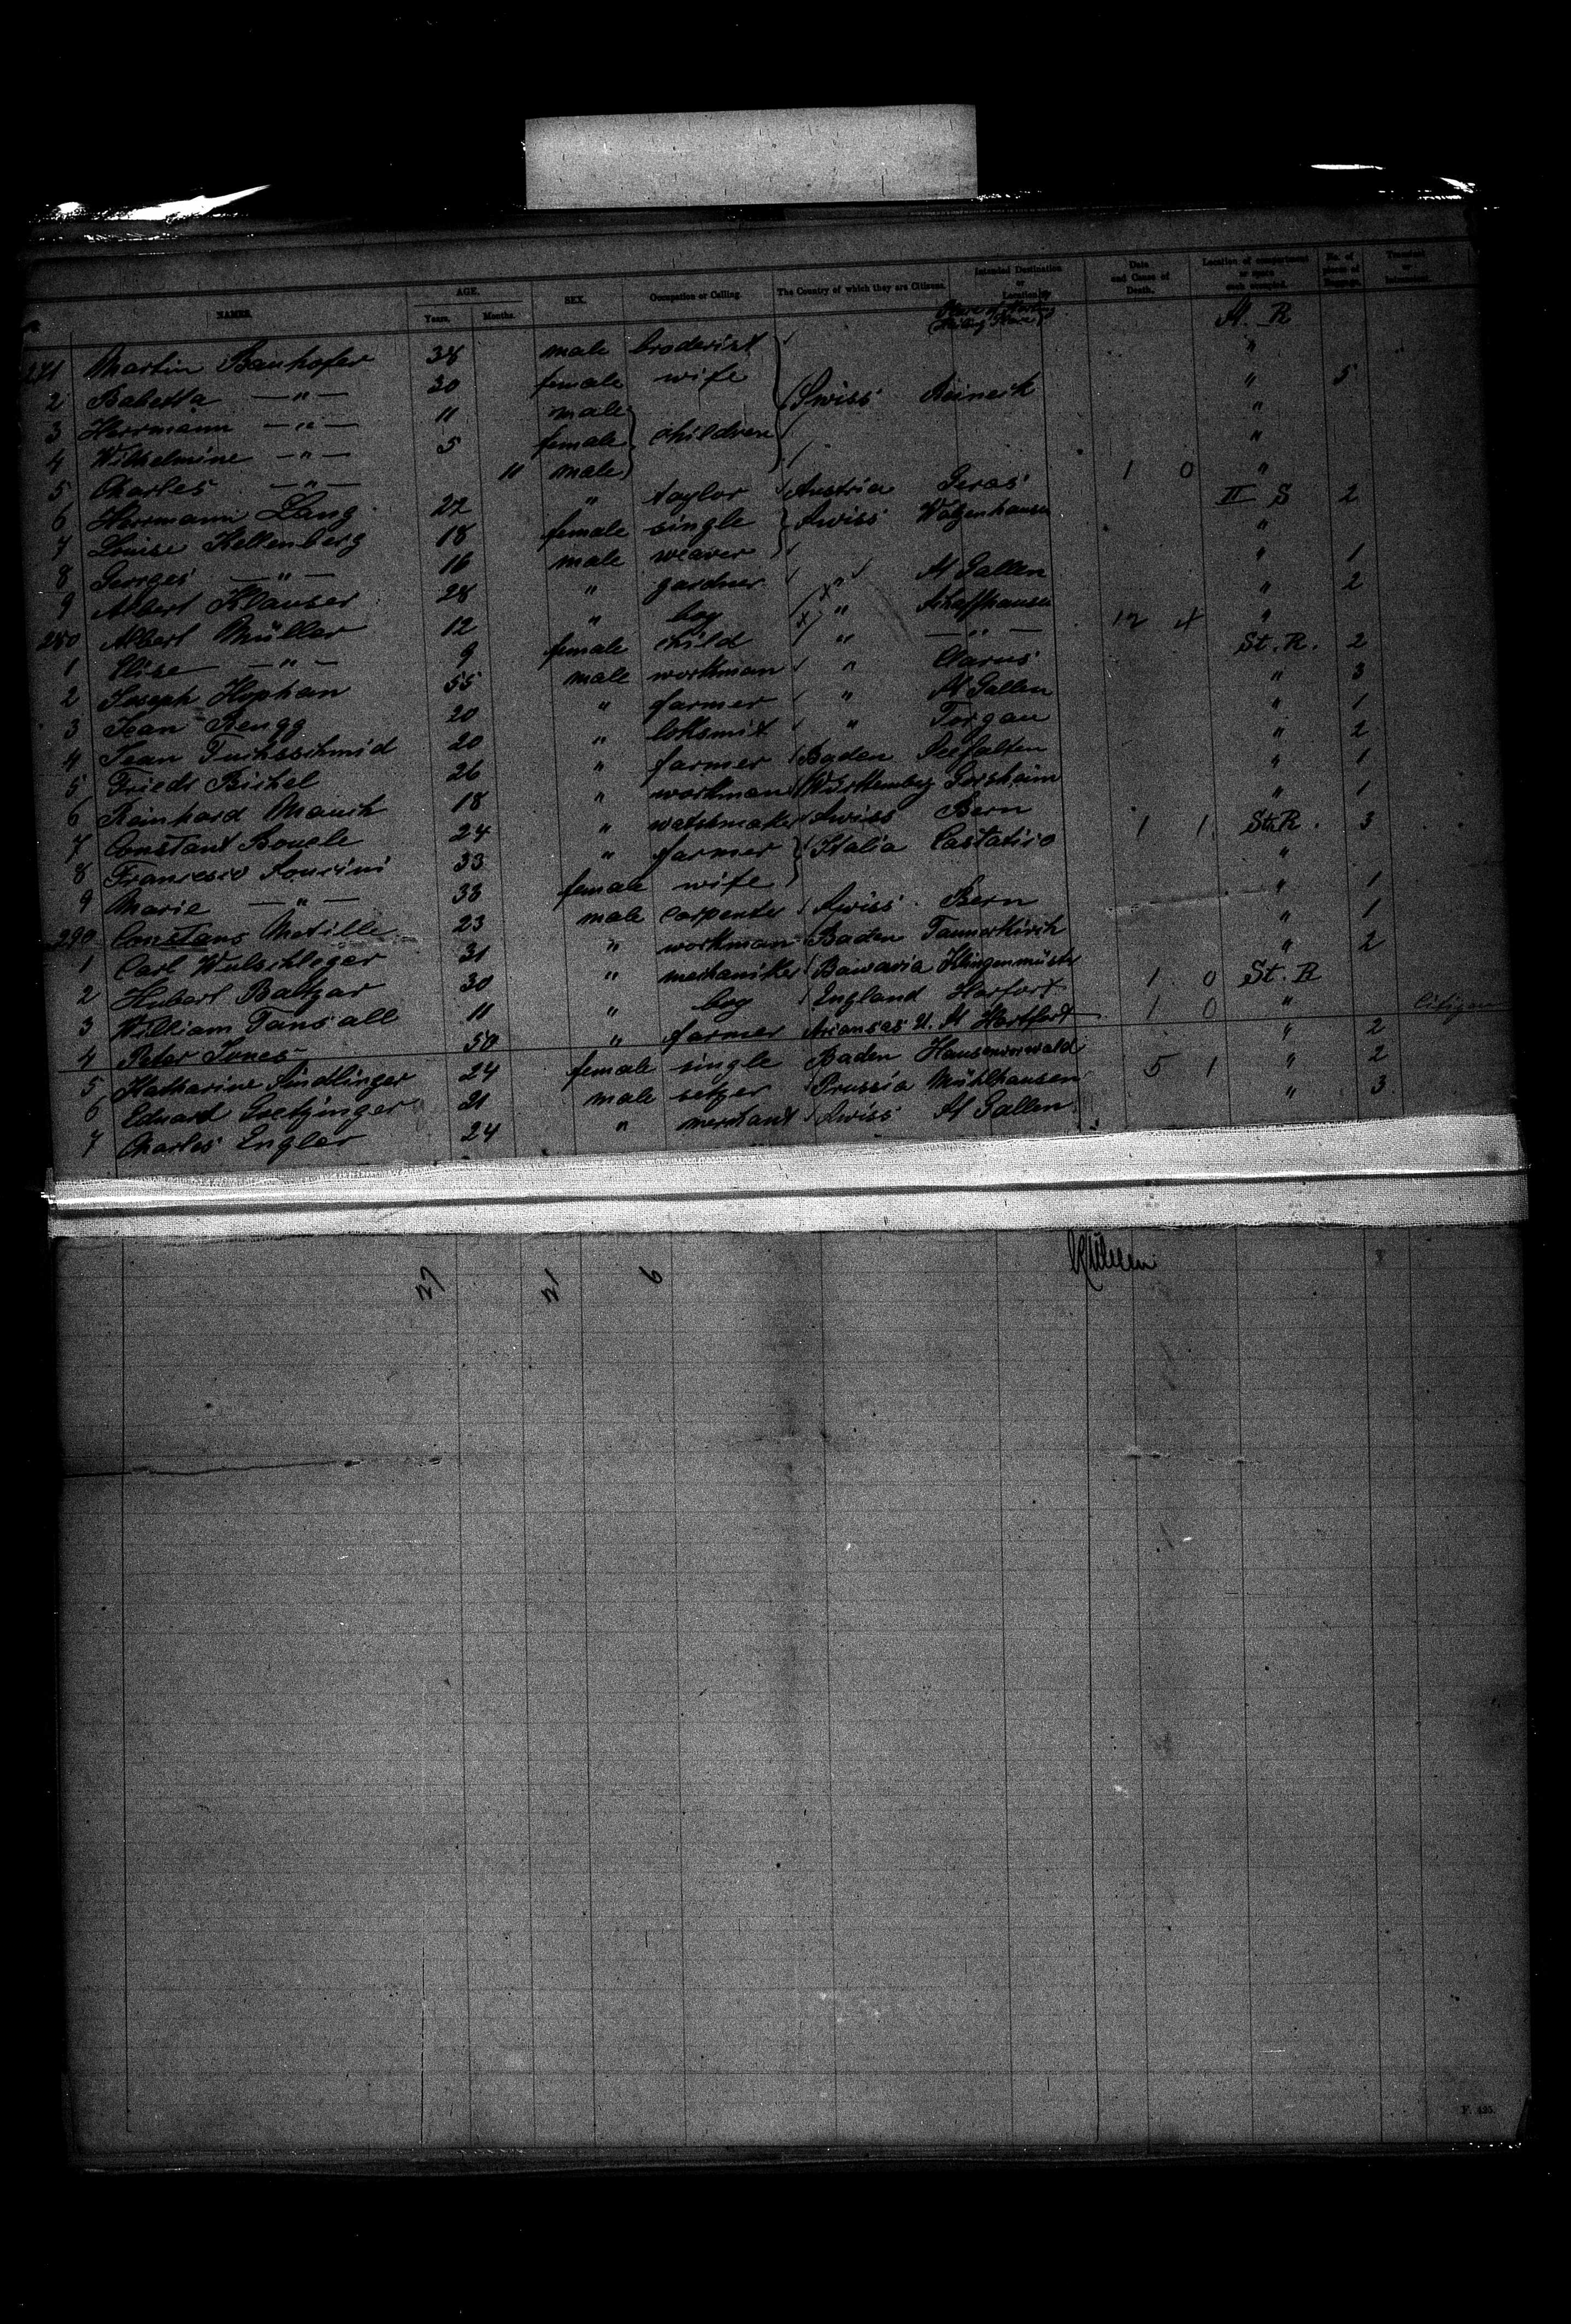 NAMES. AGE. Years. Months. SEX. Occupation or Calling. The Country of which they are Citizens. Intended Destination or Location Date and Cause of Death. Location of compartment or space each occupied. No. of pieces of Baggage. Transient or
271 Martin Bauhofer 38 male broderist St. R
2 Babetta —"— 30 female wife "
3 Herrmann —"— 11 male Swiss Reineck " 5
4 Wilhelmine —"— 5 female children "
5 Charles —"— 11 male "
6 Herrmann Lang 22 " taylor Austria Geras 1 0 "
7 Louise Kellenberg 18 female single Swiss Walzenhausen II S 2
8 Georges —"— 16 male weaver "
9 Albert Klauser 28 " gardner " St Gallen " 1
280 Albert Müller 12 " boy " Schaffhausen " 2
1 Elise —"— 9 female child " —"— 12 4 "
2 Joseph Hophan 55 male workman " Glarus St. R. 2
3 Jean Rengg 20 " farmer " St Gallen " 3
4 Jean Fuchsschmid 20 " loksmit " Torgau " 1
5 Friedr Bickel 26 " farmer Baden Seefalten " 2
6 Reinhard Mauch 18 " workman Württemberg Gersheim " 1
7 Constant Boucle 24 " watchmaker Swiss Bern " 1
8 Francesco 33 " farmer Italia Castatiro 1 1 St. R. 3
9 Marie —"— 33 female wife "
290 Constans Matille 23 male carpenter Swiss Bern " 1
1 Carl Wulschleger 31 " workman Baden Tannerkirch " 1
2 Hubert Baltzar 30 " mechaniker Bawaria Klingenmüster " 2
3 William Tansall 11 " boy England Harfort 1 0 St. R
4 Peter Jones 50 " farmer Arianses U. St Hartford 1 0 " Citizen
5 Katharine Sindlinger 24 female single Baden Hausenvorwald " 2
6 Eduard Goetzinger 21 male setzer Prussia Mühlhausen 5 1 " 2
7 Charles Engler 24 " merchant Swiss St Gallen " 3
6
F. 425.